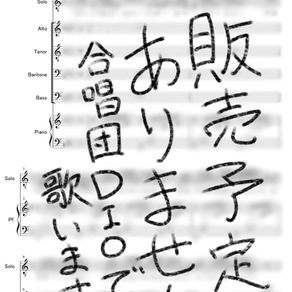 販売予定
ありませ
合唱団DIOで
歌います
Solo
Alto
Tenor
Baritone
Bass
Piano
Solo
Pf.
Solo